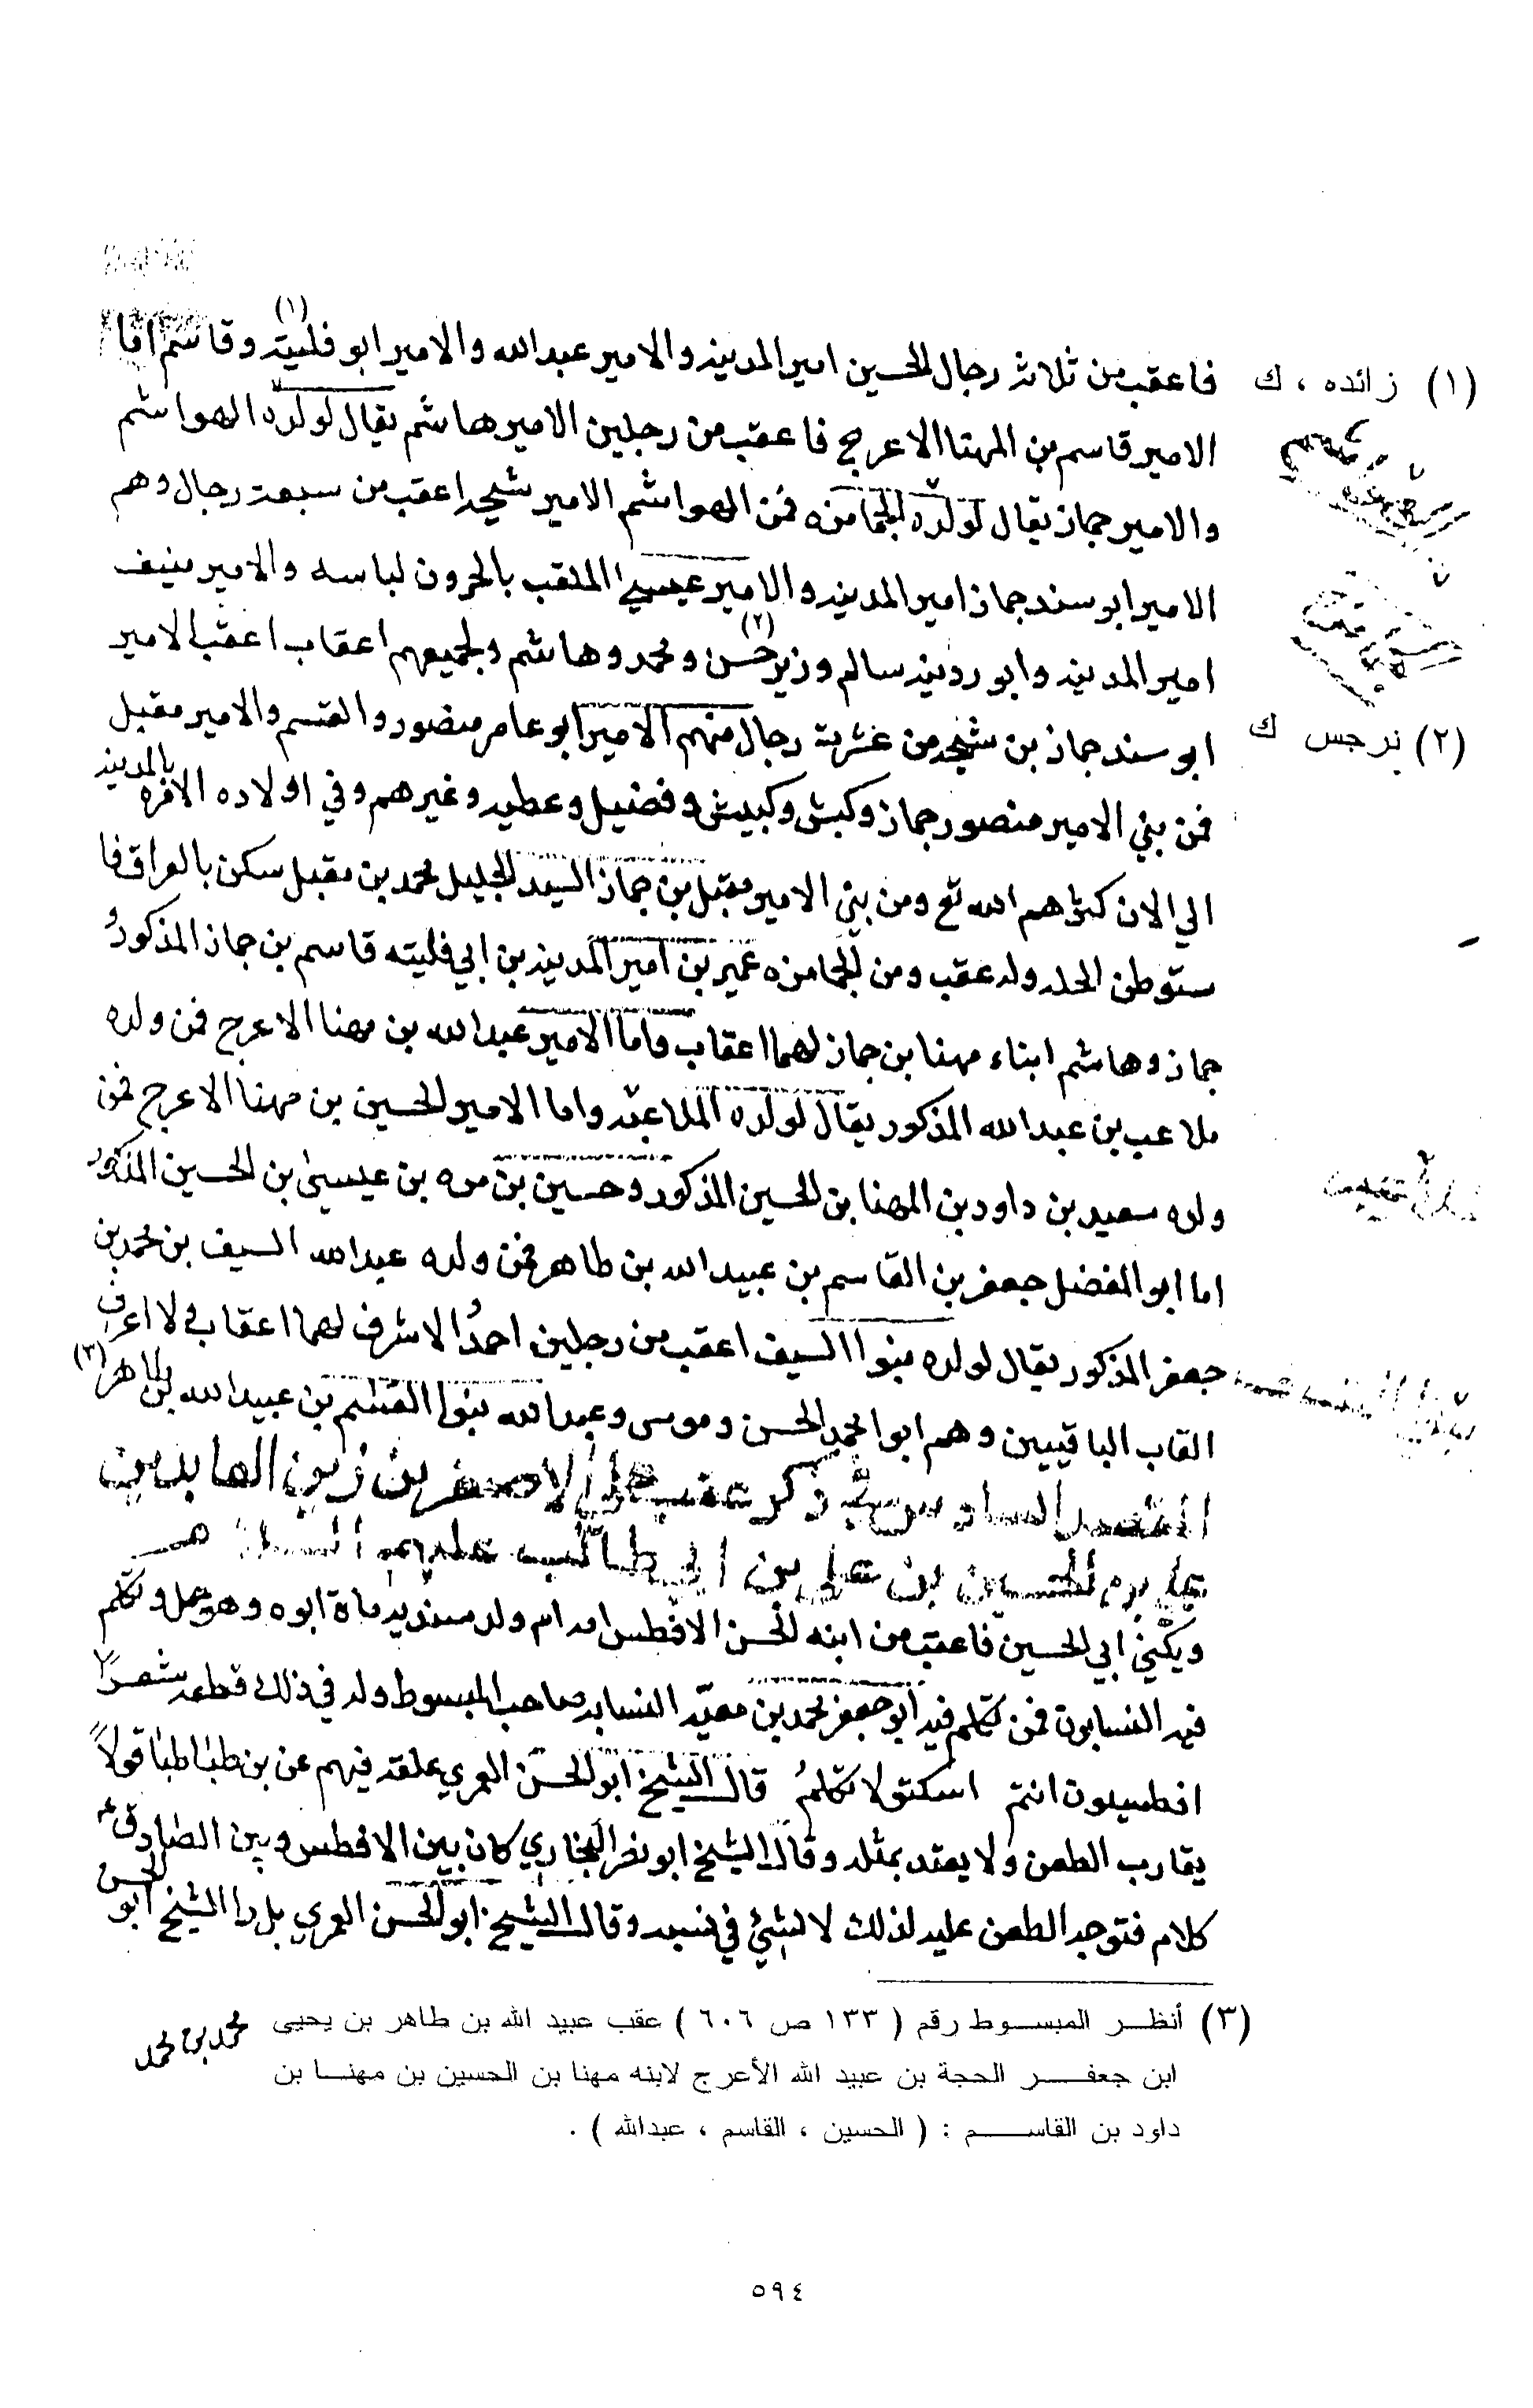 فاعقب من ثلاث رجال الحسين امير المدينه والامير عبدالله والامير ابو فليته (١) وقاسم اما
(١) زائده ، ك
الامير قاسم بن المهنا الاعرج فاعقب من رجلين الامير هاشم يقال لولده الهواشم
والامير جماز يقال لولده الجمامزه فمن الهواشم الامير شيحه اعقب من سبعة رجال وهم
الامير ابو سند جماز امير المدينه والامير عيسى الملقب بالحرون لباسه والامير منيف
امير المدينه وابو ردينه سالم وزير حسن (٢) ومحمد وهاشم ولجميعهم اعقاب اعقب الامير
ابو سند جماز بن شيحه من عشرة رجال منهم الامير ابو عامر منصور والقسم والامير مقبل
(٢) نرجس ك
فمن بني الامير منصور جماز وكبش وكبيش وفضيل وعطيه وغيرهم وفي اولاده الامره بالمدينه
الي الان كثرهم الله تع ومن بني الامير مقبل بن جماز السيد الجليل محمد بن مقبل سكن بالعراق فا
ستوطن الحله وله عقب ومن الجمامزه عمير بن امير المدينه بن ابي فليته قاسم بن جماز المذكور و
جماز وهاشم ابناء مهنا بن جماز لهما اعقاب واما الامير عبدالله بن مهنا الاعرج فمن ولده
ملاعب بن عبدالله المذكور يقال لولده الملاعبه واما الامير الحسين بن مهنا الاعرج فمن
ولده سعيد بن داود بن المهنا بن الحسين المذكور وحسين بن مره بن عيسى بن الحسين المذكور
اما ابو الفضل جعفر بن القاسم بن عبيدالله بن طاهر فمن ولده عبدالله السيف بن محمد بن
جعفر المذكور يقال لولده بنوا السيف اعقب من رجلين احمد الاشرف لهما اعقاب ولا اعرف
القاب الباقيين وهم ابوا محمد الحسن وموسى وعبدالله بنوا القسم بن عبيدالله بن طاهر (٣)
المقصد السادس في ذكر عقب علي الاصغر بن زين العابدين
علي بن الحسين بن علي بن ابي طالب عليهم السلام
ويكنى ابي الحسين فاعقب من ابنه الحسن الافطس امه ام ولد سنديه مات ابوه وهو حمل وتكلم
فيه النسابون فمن تكلم فيه ابو جعفر محمد بن معيه النسابه صاحب المبسوط وله في ذلك قطعه شعرا
افطسيون انتم اسكتو لا تكلمو قال الشيخ ابو الحسن العمري علقه فيهم عن بن طباطبا قولا
يقارب الطعن ولا يعتد بمثله وقال الشيخ ابو نصر البخاري كان بين الافطس وبين الصادق ع
كلام فتوجه الطعن عليه لذلك لا لشئ في نسبه وقال الشيخ ابو الحسن العمري بل راا الشيخ ابو الحسن
محمد بن محمد
(٣) أنظر المبسوط رقم ( ١٣٣ ص ٦٠٦ ) عقب عبيد الله بن طاهر بن يحيى
ابن جعفر الحجة بن عبيد الله الأعرج لابنه مهنا بن الحسين بن مهنا بن
داود بن القاسم : ( الحسين ، القاسم ، عبدالله ) .
٥٩٤